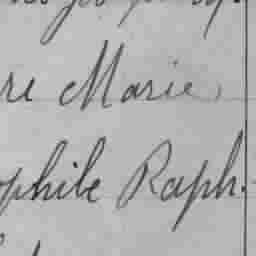 re Marie
ophile Raph.